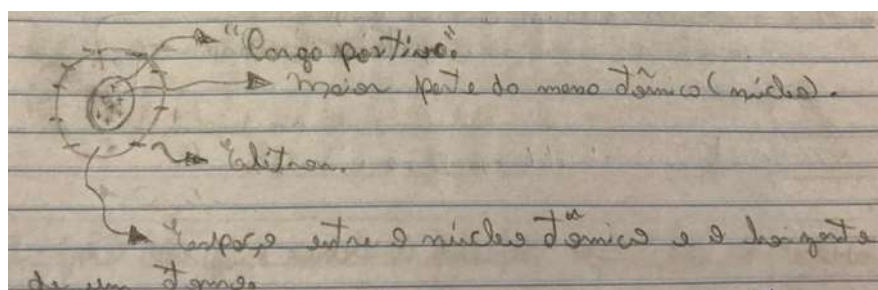 "Carga positiva".
Maior parte do massa atômica (núcleo).
Elétron.
Espaço entre o núcleo atômico e o horizonte
de um átomo.